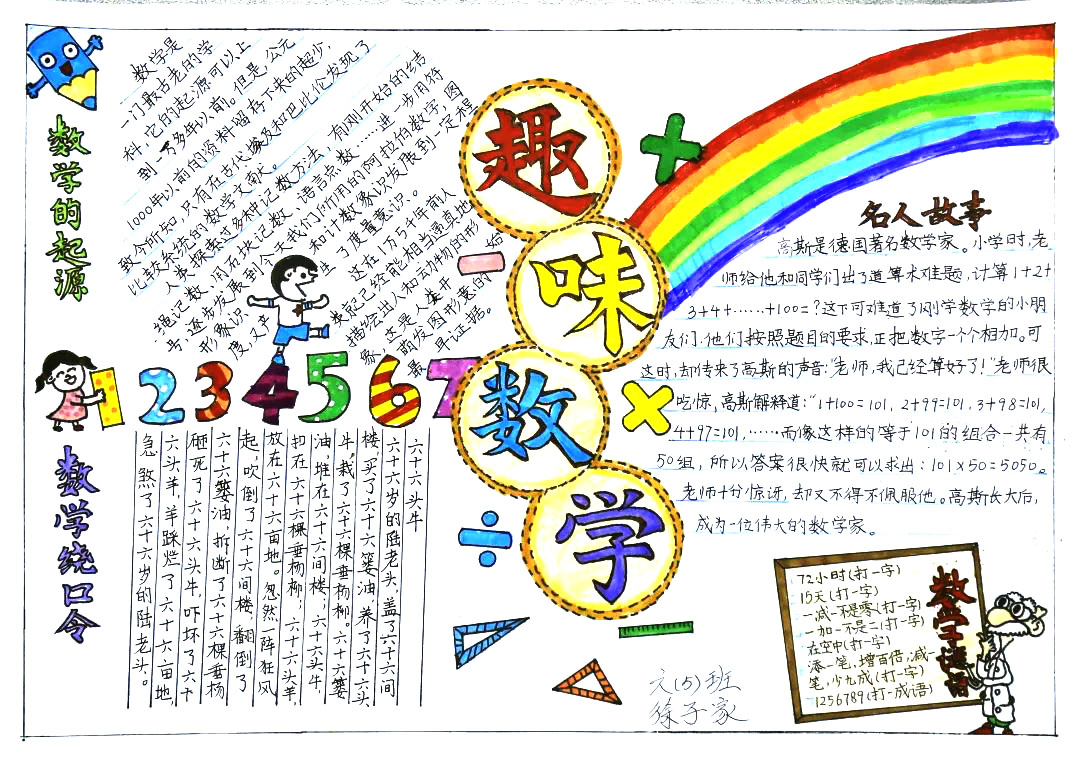 数学的起源
数学是
一门最古老的学
科，它的起源可以上
到一万多年以前。但是公元
1000年以前的资料留存下来的越少，
致今所知，只有在古代埃及和巴比伦发现了
比较系统的数学文献。
人类探索过多种记数方法，有刚开始的结
绳记数，用石块记数，语言点数……进一步用符
号，逐步发展到今天我们所用的阿拉伯数字，图
形象识和计数象识发展到一定程
度，又产生了度量意识。
这在1万5千年前人
类就已经能相当逼真地
描绘出人和动物的形
象，这是人类开始
萌发图形意的
最早证据。
趣
味
数
学
名人故事
高斯是德国著名数学家。小学时，老
师给他和同学们出了道算术难题，计算1+2+
3+4+……+100=？这下可难道了刚学数学的小朋
友们，他们按照题目的要求，正把数字一个个相加。可
这时，却传来了高斯的声音：“老师，我已经算好了！”老师很
吃惊，高斯解释道：“1+100=101，2+99=101，3+98=101，
4+97=101，……而像这样的等于101的组合一共有
50组，所以答案很快就可以求出：101×50=5050。
老师十分惊讶，却又不得不佩服他。高斯长大后，
成为一位伟大的数学家。
1234567
数学绕口令
六十六头牛
六十六岁的陆老头，盖了六十六间
楼，买了六十六篓油，养了六十六头
牛，栽了六十六棵垂杨柳。六十六篓
油，堆在六十六间楼；六十六头牛，
扣在六十六棵垂杨柳；六十六头羊，
放在六十六亩地。忽然一阵狂风
起，吹倒了六十六间楼，翻倒了
六十六篓油，折断了六十六棵垂杨
砸死了六十六头牛，吓坏了六十
六头羊，羊踩烂了六十六亩地，
急煞了六十六岁的陆老头。
数学谜语
72小时(打一字)
15天(打一字)
一减一不是零(打一字)
一加一不是二(打一字)
在空中(打一字)
添一笔，增百倍，减一
笔，少九成(打一字)
1256789(打一成语)
六(5)班
徐子家